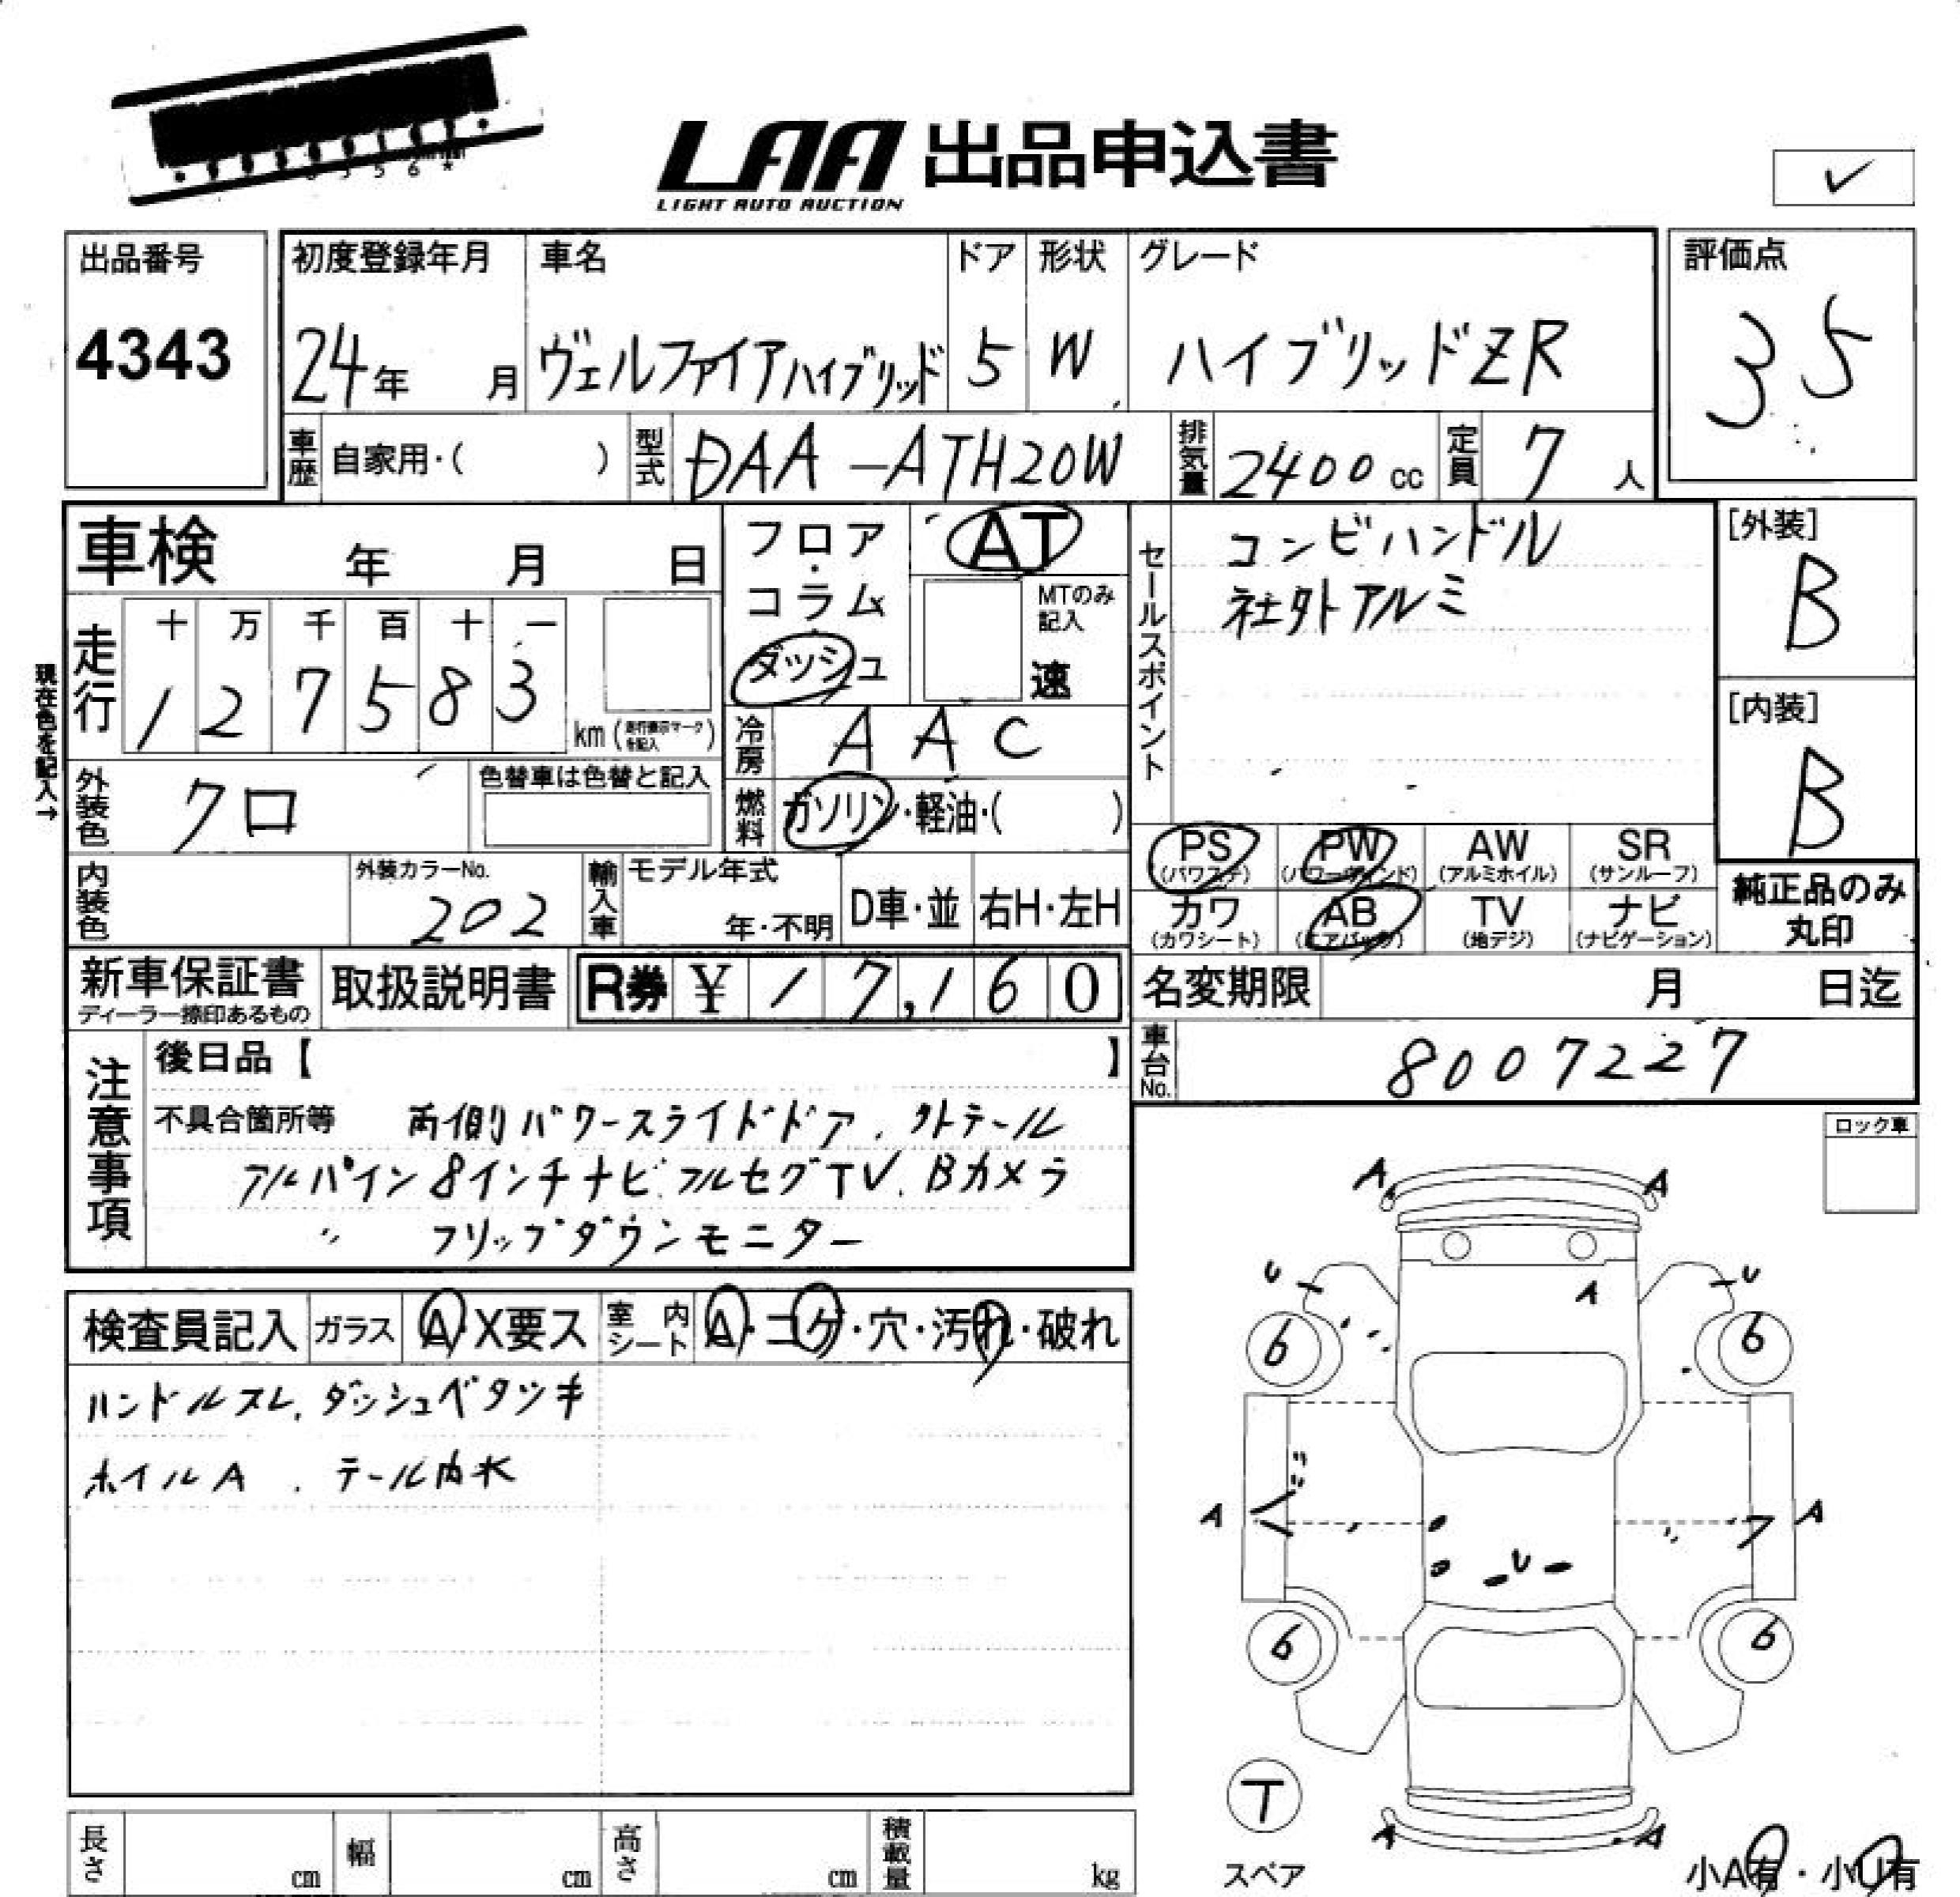 LAA 出品申込書
LIGHT AUTO AUCTION
✓
出品番号
4343
初度登録年月
24年 月
車名
ヴェルファイアハイブリッド
ドア
5
形状
W
グレード
ハイブリッドZR
評価点
35
車歴 自家用・( )
型式 DAA-ATH20W
排気量 2400cc
定員 7人
車検 年 月 日
フロア・コラム・ダッシュ
AT
MTのみ記入
速
セールスポイント
コンビハンドル
社外アルミ
[外装]
B
[内装]
B
現在色を記入→
走行
十 万 千 百 十 一
1 2 7 5 8 3
km(走行表示マークを記入)
冷房 AAC
外装色 クロ
色替車は色替と記入
燃料 ガソリン・軽油・( )
PS (パワステ)
PW (パワーウィンド)
AW (アルミホイル)
SR (サンルーフ)
カワ (カワシート)
AB (エアバック)
TV (地デジ)
ナビ (ナビゲーション)
純正品のみ丸印
内装色
外装カラーNo.
202
輸入車
モデル年式
年・不明
D車・並
右H・左H
新車保証書
ディーラー捺印あるもの
取扱説明書
R券 ¥ 17,160
名変期限 月 日迄
車台No. 8007227
注意事項
後日品【 】
不具合箇所等 両側パワースライドドア、クトテール
アルパイン8インチナビ、フルセグTV、Bカメラ
〃 フリップダウンモニター
ロック車
検査員記入
ガラス A・X要ス
室内シート A・コゲ・穴・汚れ・破れ
ハンドルスレ、ダッシュベタツキ
ホイルA、テール内水
A A
U U
A
6 6
A A
U
6 6
T
スペア
A A
小A有・小U有
長さ cm
幅 cm
高さ cm
積載量 kg